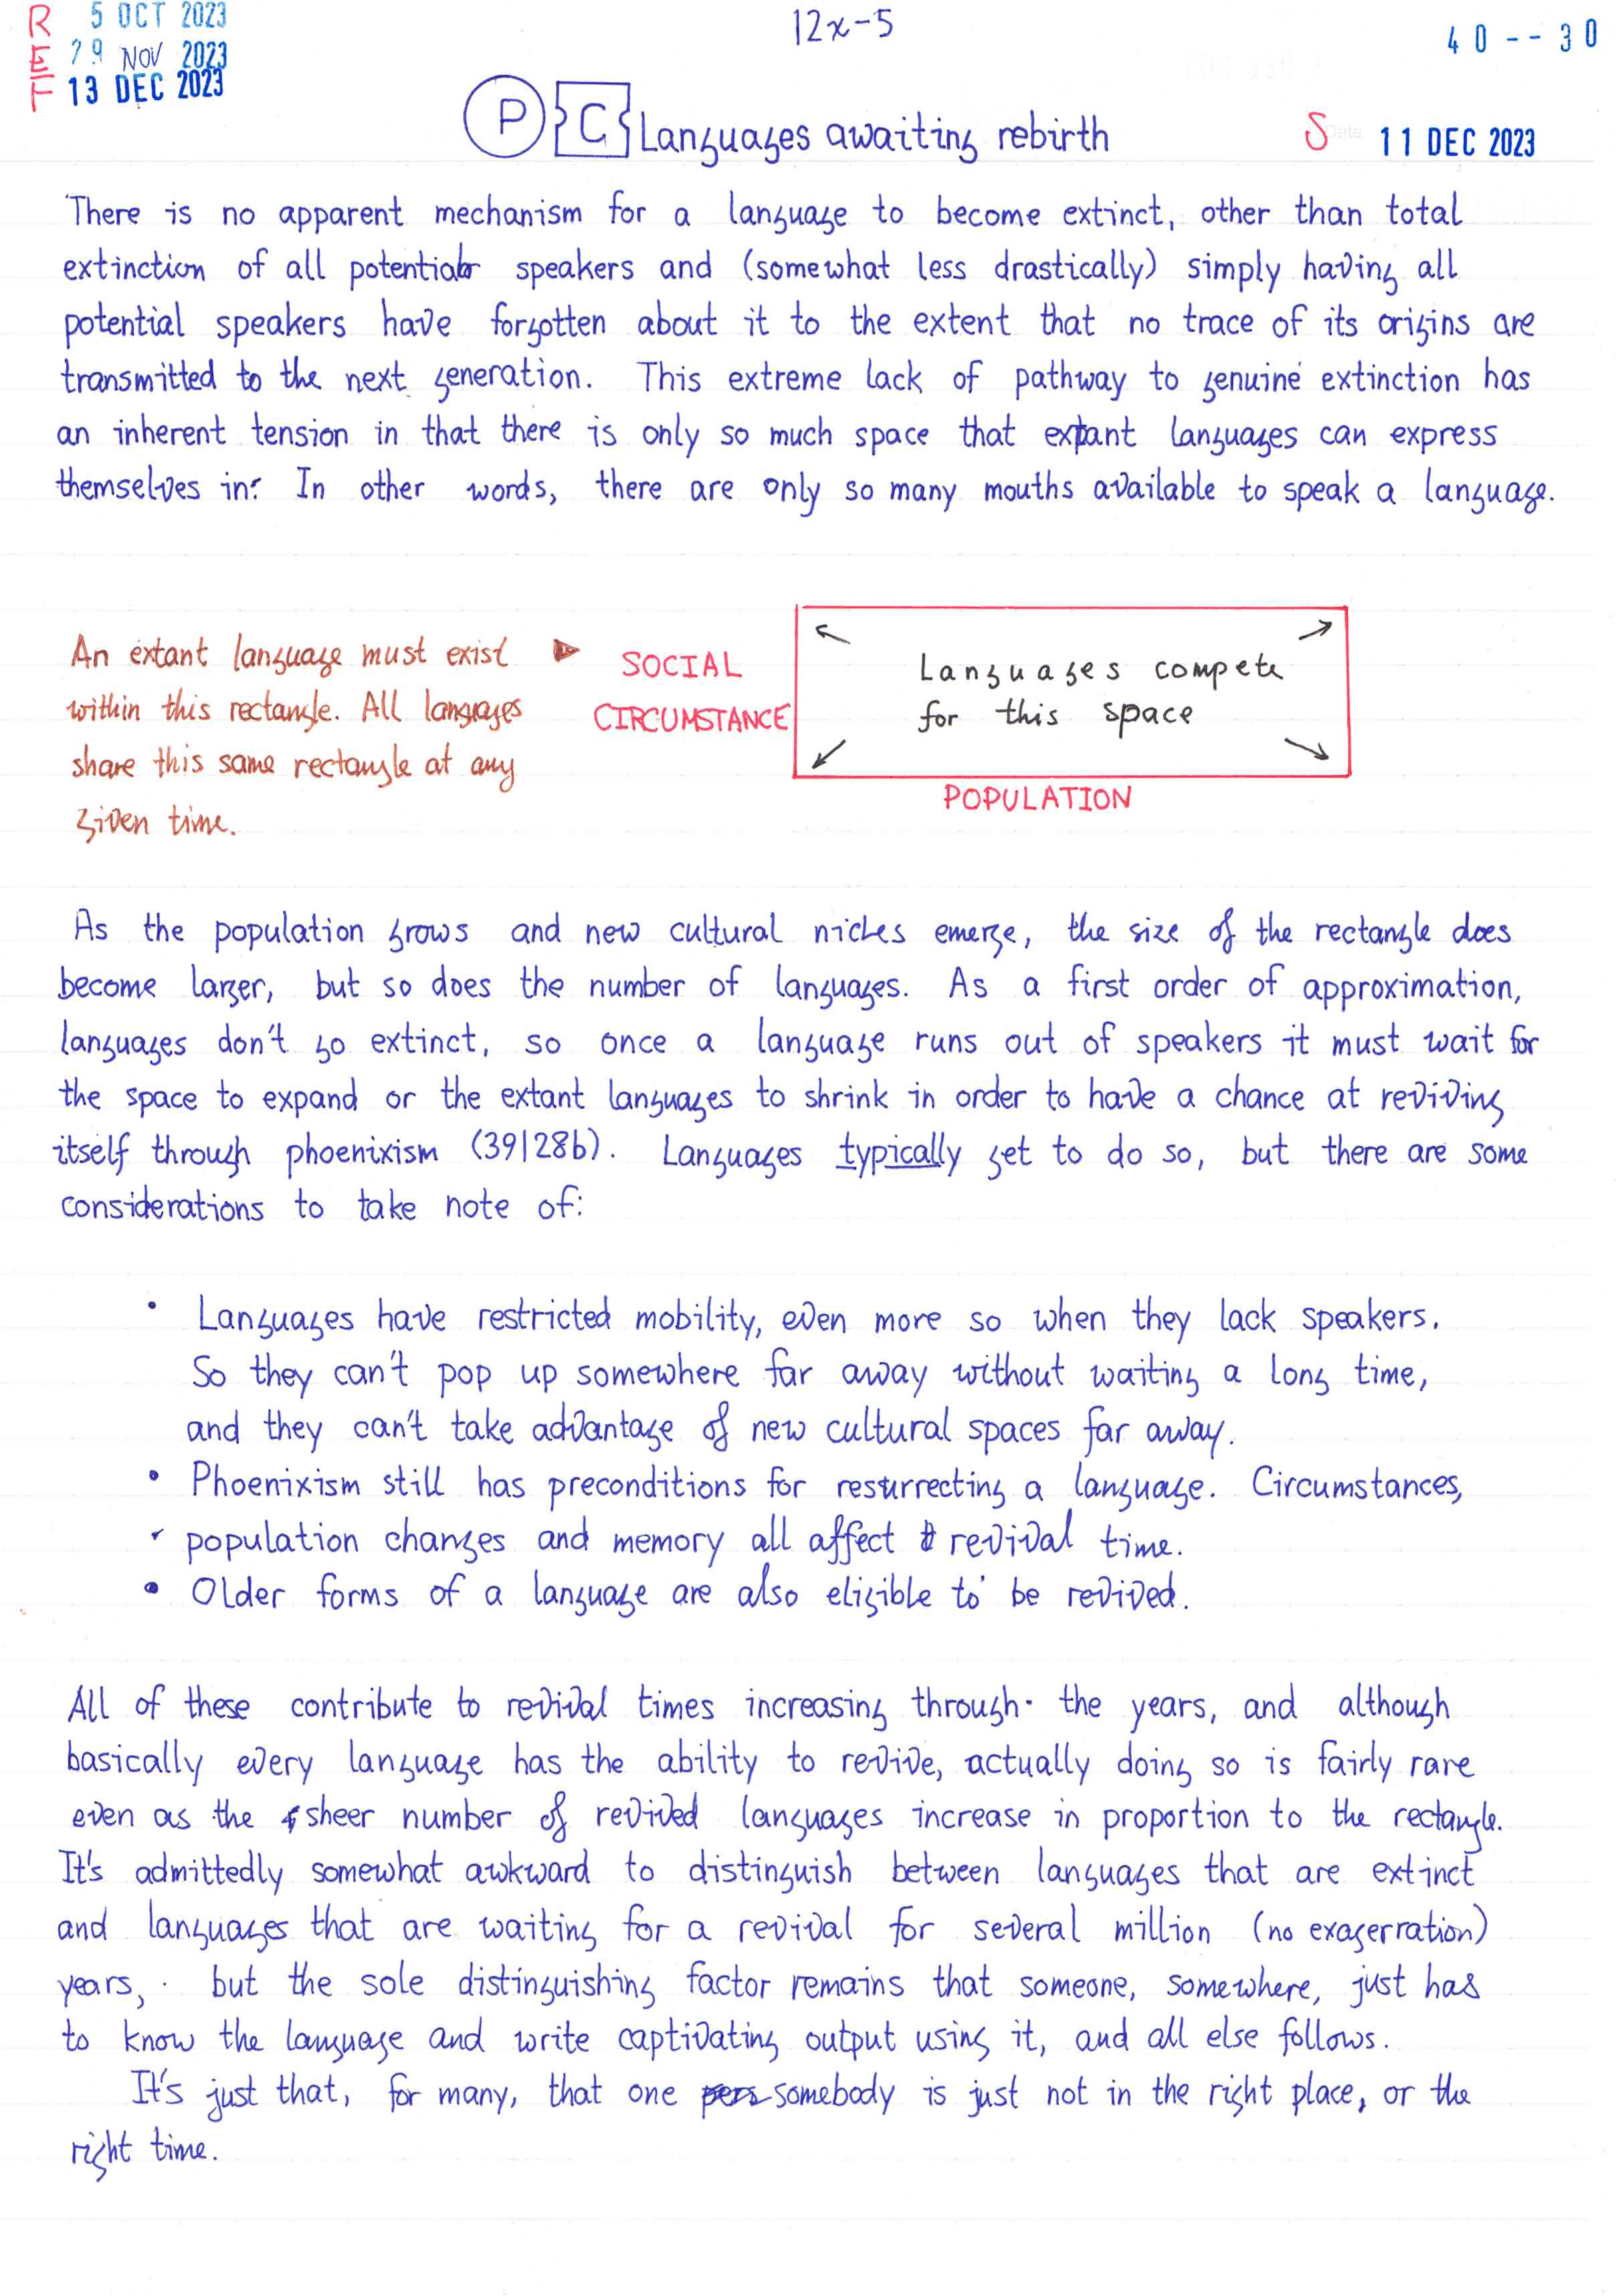 R 5 OCT 2023
E 29 NOV 2023
T 13 DEC 2023
12x-5
40--30
P C Languages awaiting rebirth
S Date 11 DEC 2023
There is no apparent mechanism for a language to become extinct, other than total
extinction of all potential speakers and (somewhat less drastically) simply having all
potential speakers have forgotten about it to the extent that no trace of its origins are
transmitted to the next generation. This extreme lack of pathway to genuine extinction has
an inherent tension in that there is only so much space that extant languages can express
themselves in. In other words, there are only so many mouths available to speak a language.
An extant language must exist
within this rectangle. All languages
share this same rectangle at any
given time.
SOCIAL
CIRCUMSTANCE
Languages compete
for this space
POPULATION
As the population grows and new cultural niches emerge, the size of the rectangle does
become larger, but so does the number of languages. As a first order of approximation,
languages don't go extinct, so once a language runs out of speakers it must wait for
the space to expand or the extant languages to shrink in order to have a chance at reviving
itself through phoenixism (39|28b). Languages typically get to do so, but there are some
considerations to take note of:
• Languages have restricted mobility, even more so when they lack speakers.
So they can't pop up somewhere far away without waiting a long time,
and they can't take advantage of new cultural spaces far away.
• Phoenixism still has preconditions for resurrecting a language. Circumstances,
population changes and memory all affect revival time.
• Older forms of a language are also eligible to be revived.
All of these contribute to revival times increasing through the years, and although
basically every language has the ability to revive, actually doing so is fairly rare
even as the sheer number of revived languages increase in proportion to the rectangle.
It's admittedly somewhat awkward to distinguish between languages that are extinct
and languages that are waiting for a revival for several million (no exagerration)
years, but the sole distinguishing factor remains that someone, somewhere, just has
to know the language and write captivating output using it, and all else follows.
It's just that, for many, that one somebody is just not in the right place, or the
right time.